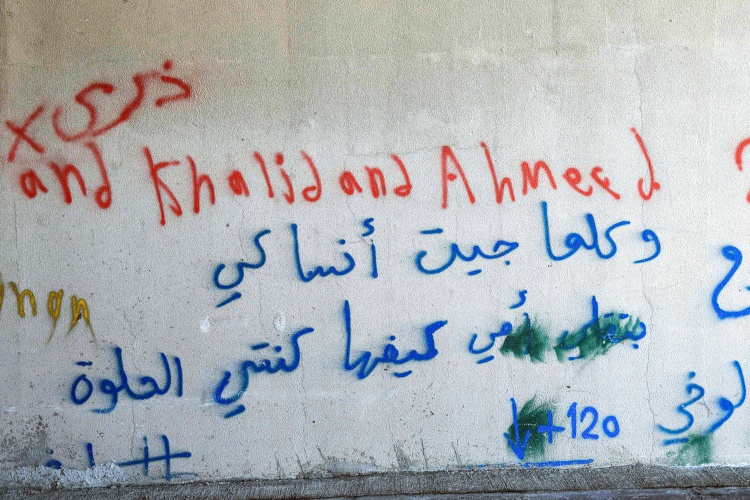 ذرى x
and Khalid and AhMeed
وكلما جيت أنساكي
بتقلي أمي كيفها كنتي الحلوة
+120